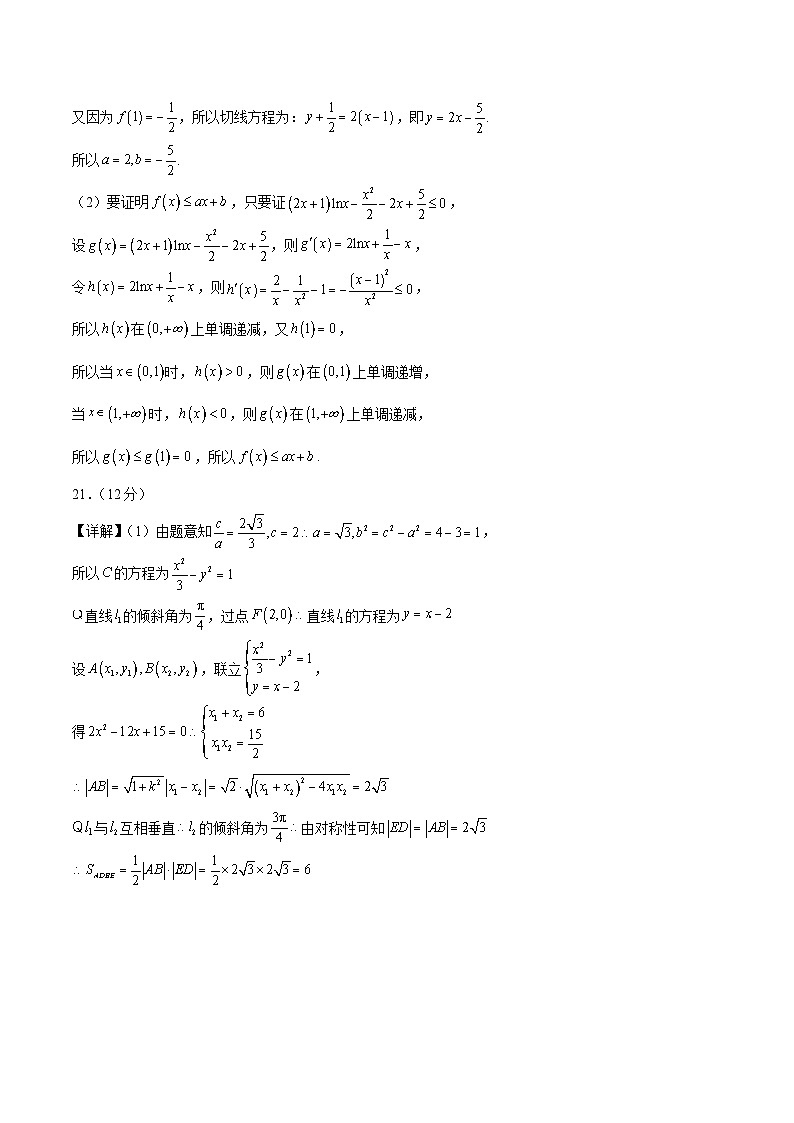 又因为 f(1)=-1/2，所以切线方程为：y+1/2=2(x-1)，即 y=2x-5/2.
所以 a=2,b=-5/2.
（2）要证明 f(x)≤ax+b，只要证 (2x+1)lnx-x²/2-2x+5/2≤0，
设 g(x)=(2x+1)lnx-x²/2-2x+5/2，则 g′(x)=2lnx+1/x-x，
令 h(x)=2lnx+1/x-x，则 h′(x)=2/x-1/x²-1=-(x-1)²/x²≤0，
所以 h(x) 在 (0,+∞) 上单调递减，又 h(1)=0，
所以当 x∈(0,1) 时，h(x)>0，则 g(x) 在 (0,1) 上单调递增，
当 x∈(1,+∞) 时，h(x)<0，则 g(x) 在 (1,+∞) 上单调递减，
所以 g(x)≤g(1)=0，所以 f(x)≤ax+b.
21.(12分)
【详解】(1）由题意知 c/a=2√3/3,c=2∴a=√3,b²=c²-a²=4-3=1，
所以 C 的方程为 x²/3-y²=1
Q直线 l₁ 的倾斜角为 π/4，过点 F(2,0)∴直线 l₁ 的方程为 y=x-2
设 A(x₁,y₁),B(x₂,y₂)，联立 {x²/3-y²=1 y=x-2，
得 2x²-12x+15=0∴{x₁+x₂=6 x₁x₂=15/2
∴|AB|=√(1+k²)|x₁-x₂|=√2·√((x₁+x₂)²-4x₁x₂)=2√3
Q l₁ 与 l₂ 互相垂直∴l₂ 的倾斜角为 3π/4∴由对称性可知 |ED|=|AB|=2√3
∴S_ADBE=1/2|AB|·|ED|=1/2×2√3×2√3=6